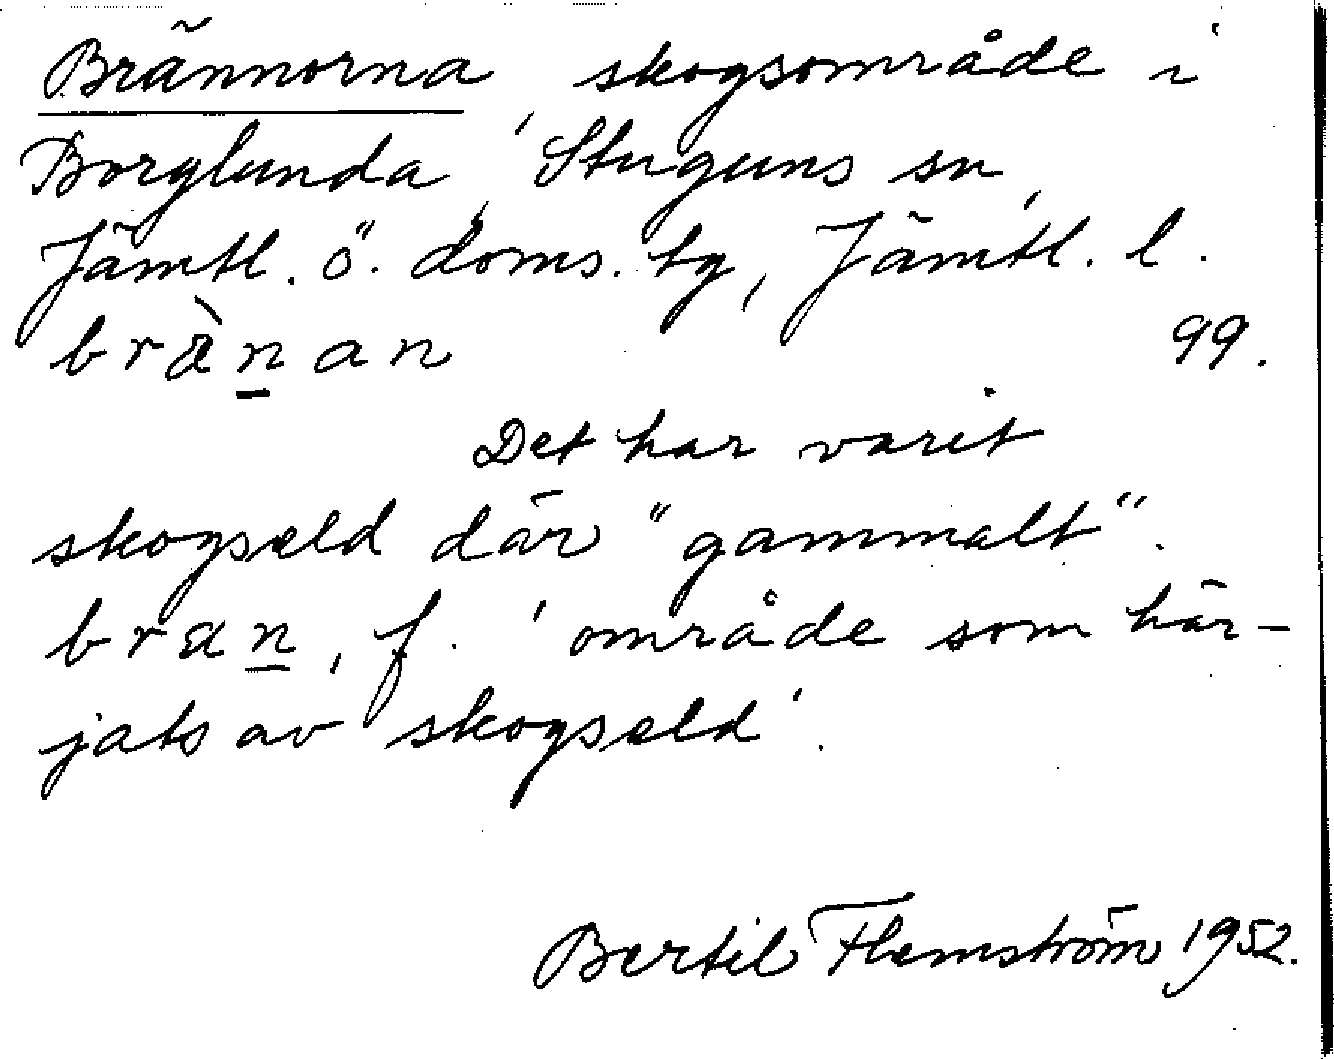 Brännorna, skogsområde i
Borglunda, Stuguns sn,
Jämtl. ö. doms. tg, Jämtl. l.
bràn̲an 99.
Det har varit
skogseld där "gammalt".
bran̲, f. 'område som här-
jats av skogseld'.
Bertil Flemström 1952.